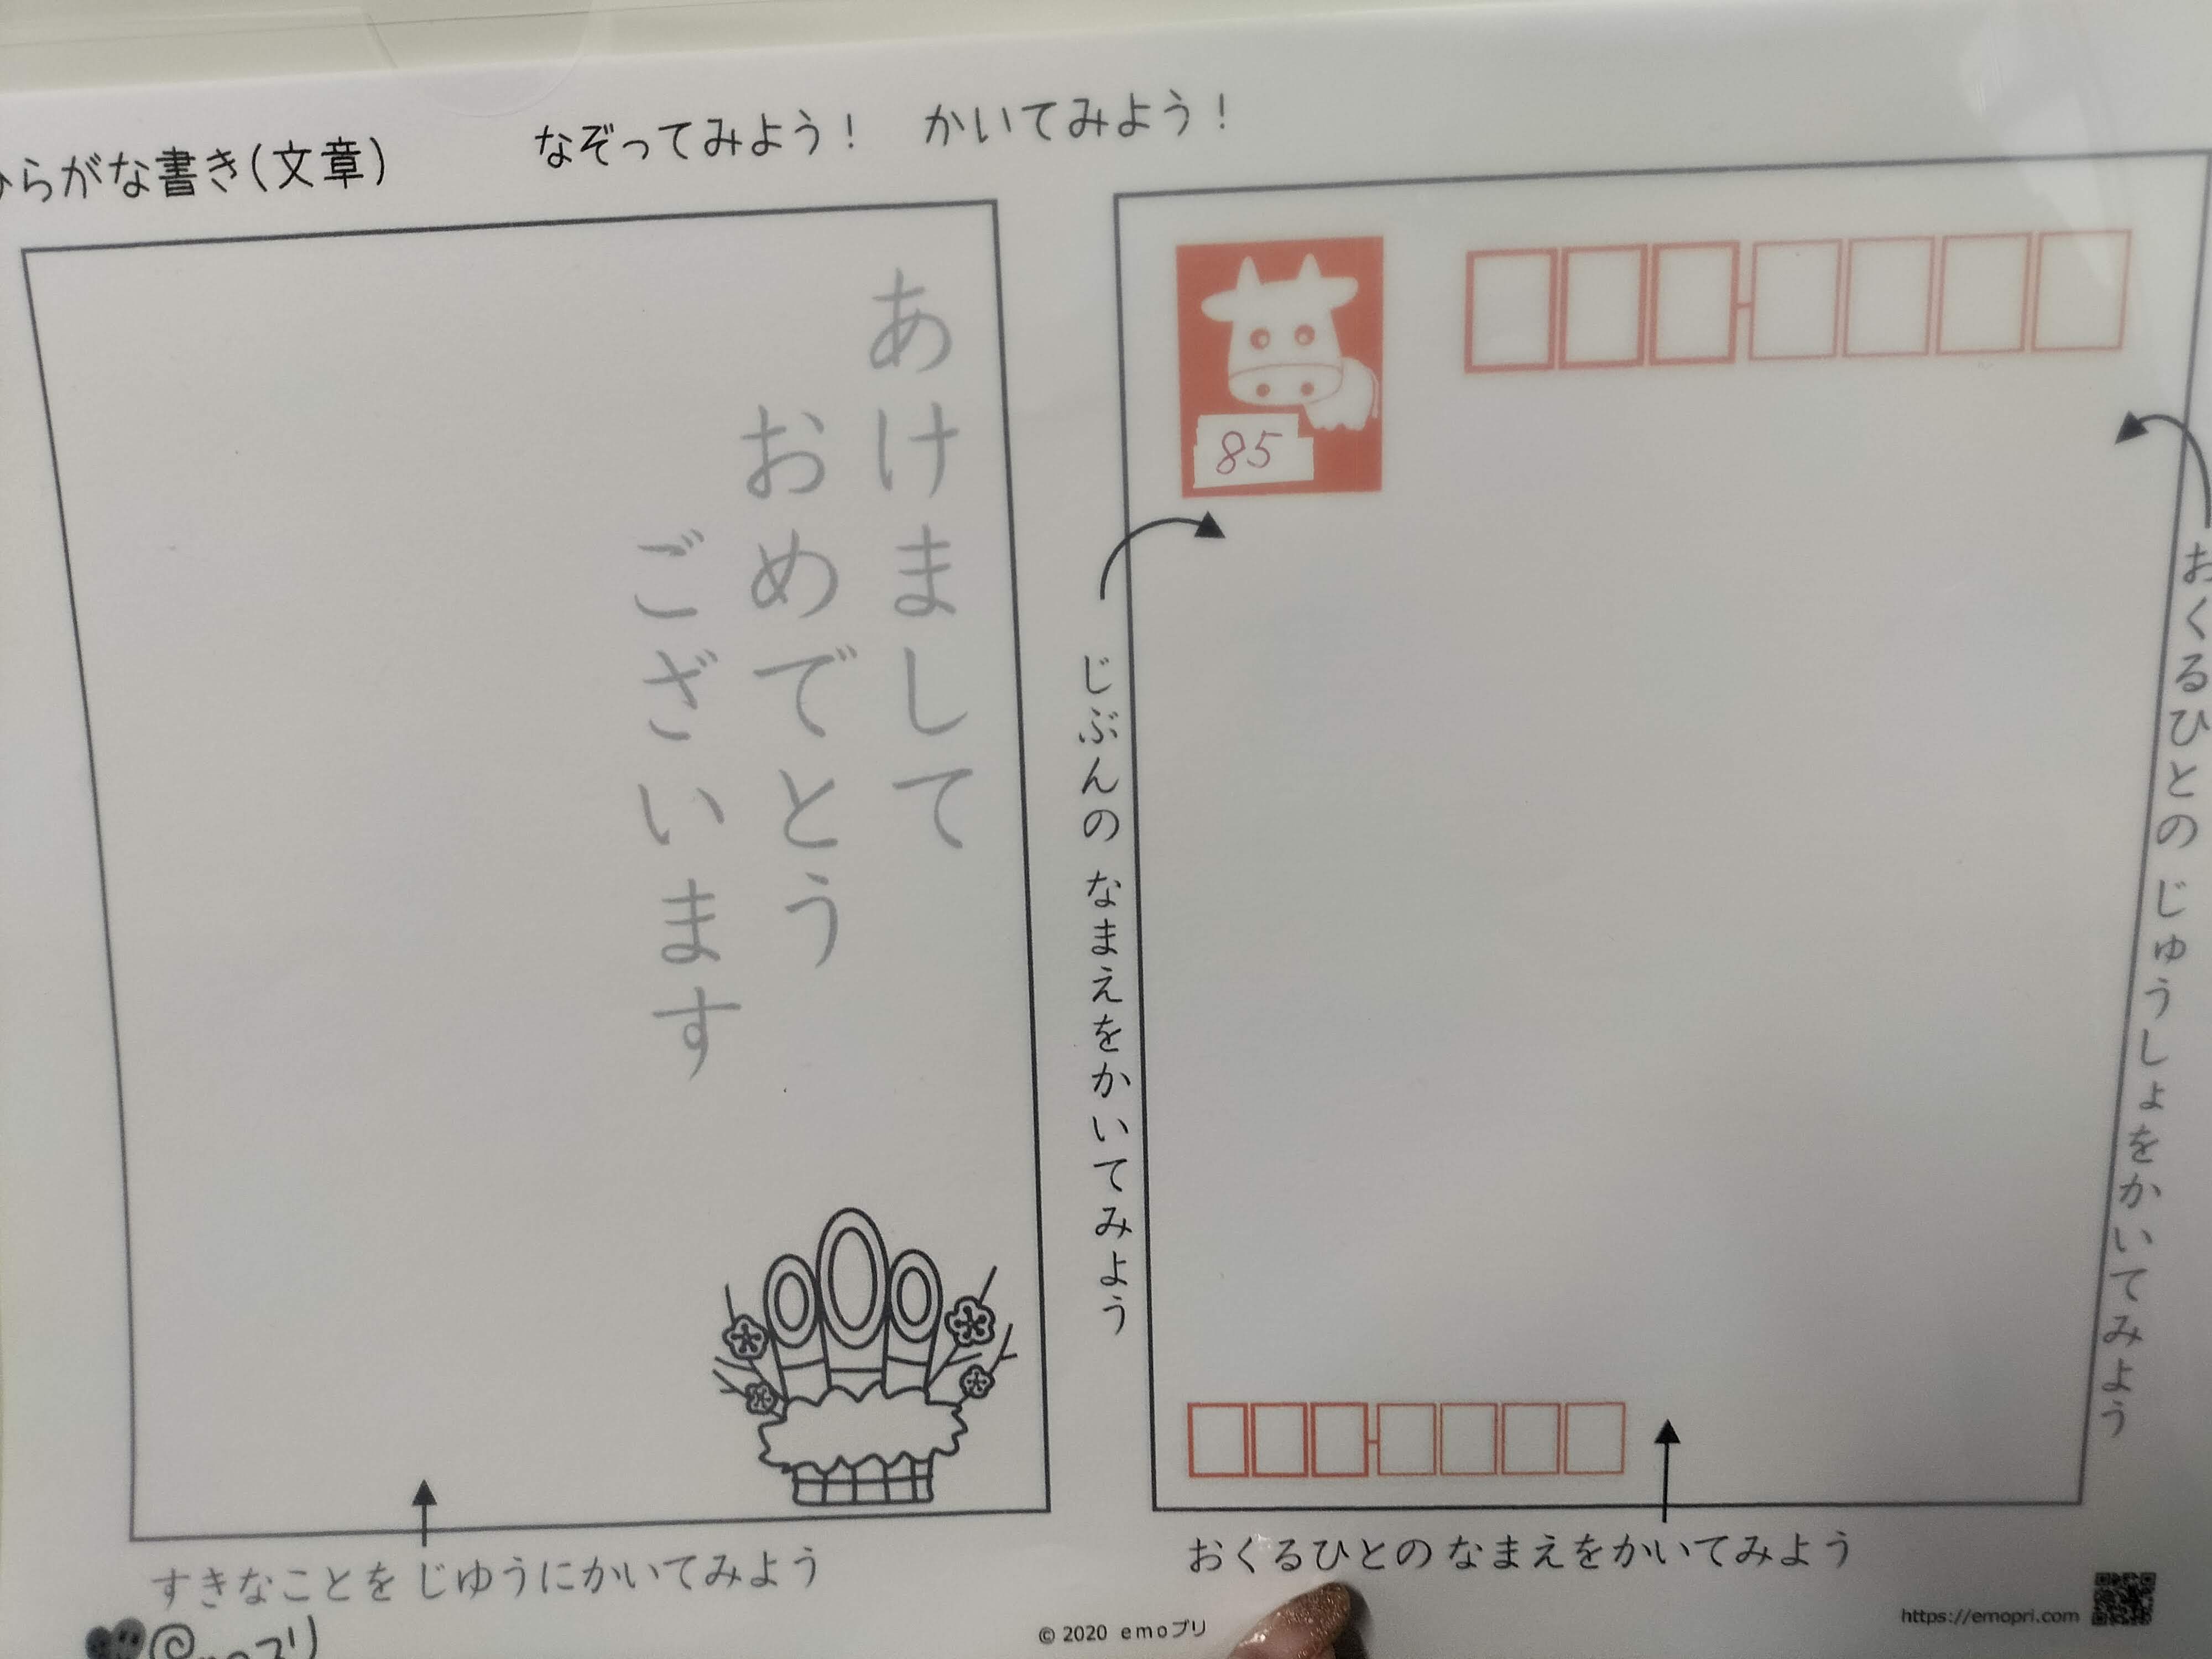 ひらがな書き(文章)
なぞってみよう! かいてみよう!
あけまして
おめでとう
ございます
すきなことを じゆうにかいてみよう
85
じぶんの なまえをかいてみよう
おくるひとの じゅうしょをかいてみよう
おくるひとの なまえをかいてみよう
© 2020 emoプリ
https://emopri.com